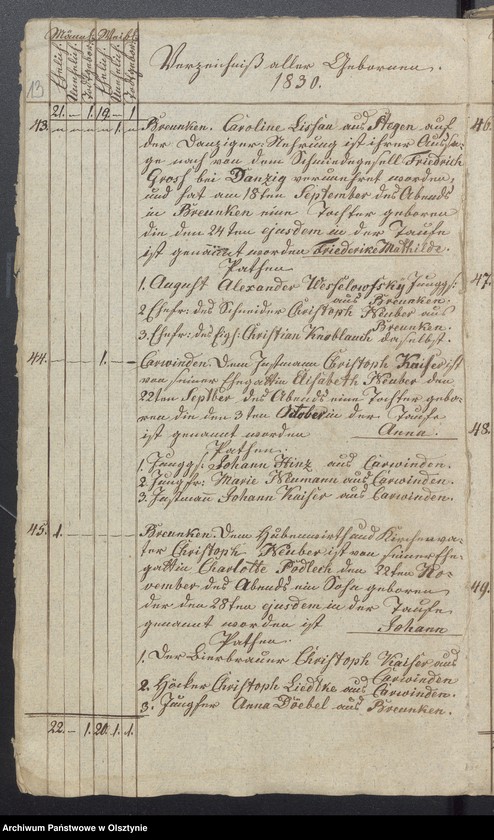 Männl. Weibl.
Ehelich. Unehelich. Todtgebor. Ehelich. Unehelich. Todtgebor.
13
Verzeichniß aller Gebornen.
1830.
21. — 1. 19 — 1
43.
Breunken. Caroline Lissau aus Stegen auf
der Danziger-Nehrung ist ihrer Aussa-
ge nach von dem Schmiedegesell Friedrich
Gross bei Danzig verunehret worden,
und hat am 18ten September des Abends
in Breunken eine Tochter geboren
die den 24ten ejusdem in der Taufe
ist genannt worden Friederike Mathilde.
Pathen
1. August Alexander Wesselowsky Junggs:
aus Breunken.
2 Ehefr: des Schneider Christoph Neuber aus
Breunken.
3. Ehefr: des Eigk: Christian Knoblauch daselbst.
44. 1.
Carwinden. Dem Instmann Christoph Kaiser ist
von seiner Ehegattin Elisabeth Neuber den
22ten Septber des Abends eine Tochter gebo-
ren die den 3ten October in der Taufe
ist genannt worden Anna.
Pathen.
1. Junggs: Johann Hinz aus Carwinden.
2. Jungfr: Marie Neumann aus Carwinden.
3. Instmann Johann Kaiser aus Carwinden.
45. 1.
Breunken. Dem Hubenwirth und Kirchenva-
ter Christoph Neuber ist von seiner Ehe-
gattin Charlotte Podlech den 22ten No-
vember des Abends ein Sohn geboren
der den 28ten ejusdem in der Taufe
genannt worden ist Johann
Pathen.
1. Der Bierbrauer Christoph Kaiser aus
Carwinden
2. Höcker Christoph Liedtke aus Carwinden.
3. Jungfer Anna Döebel aus Breunken.
22. — 1. 20. 1. 1.
46.
47.
48.
49.
Archiwum Państwowe w Olsztynie